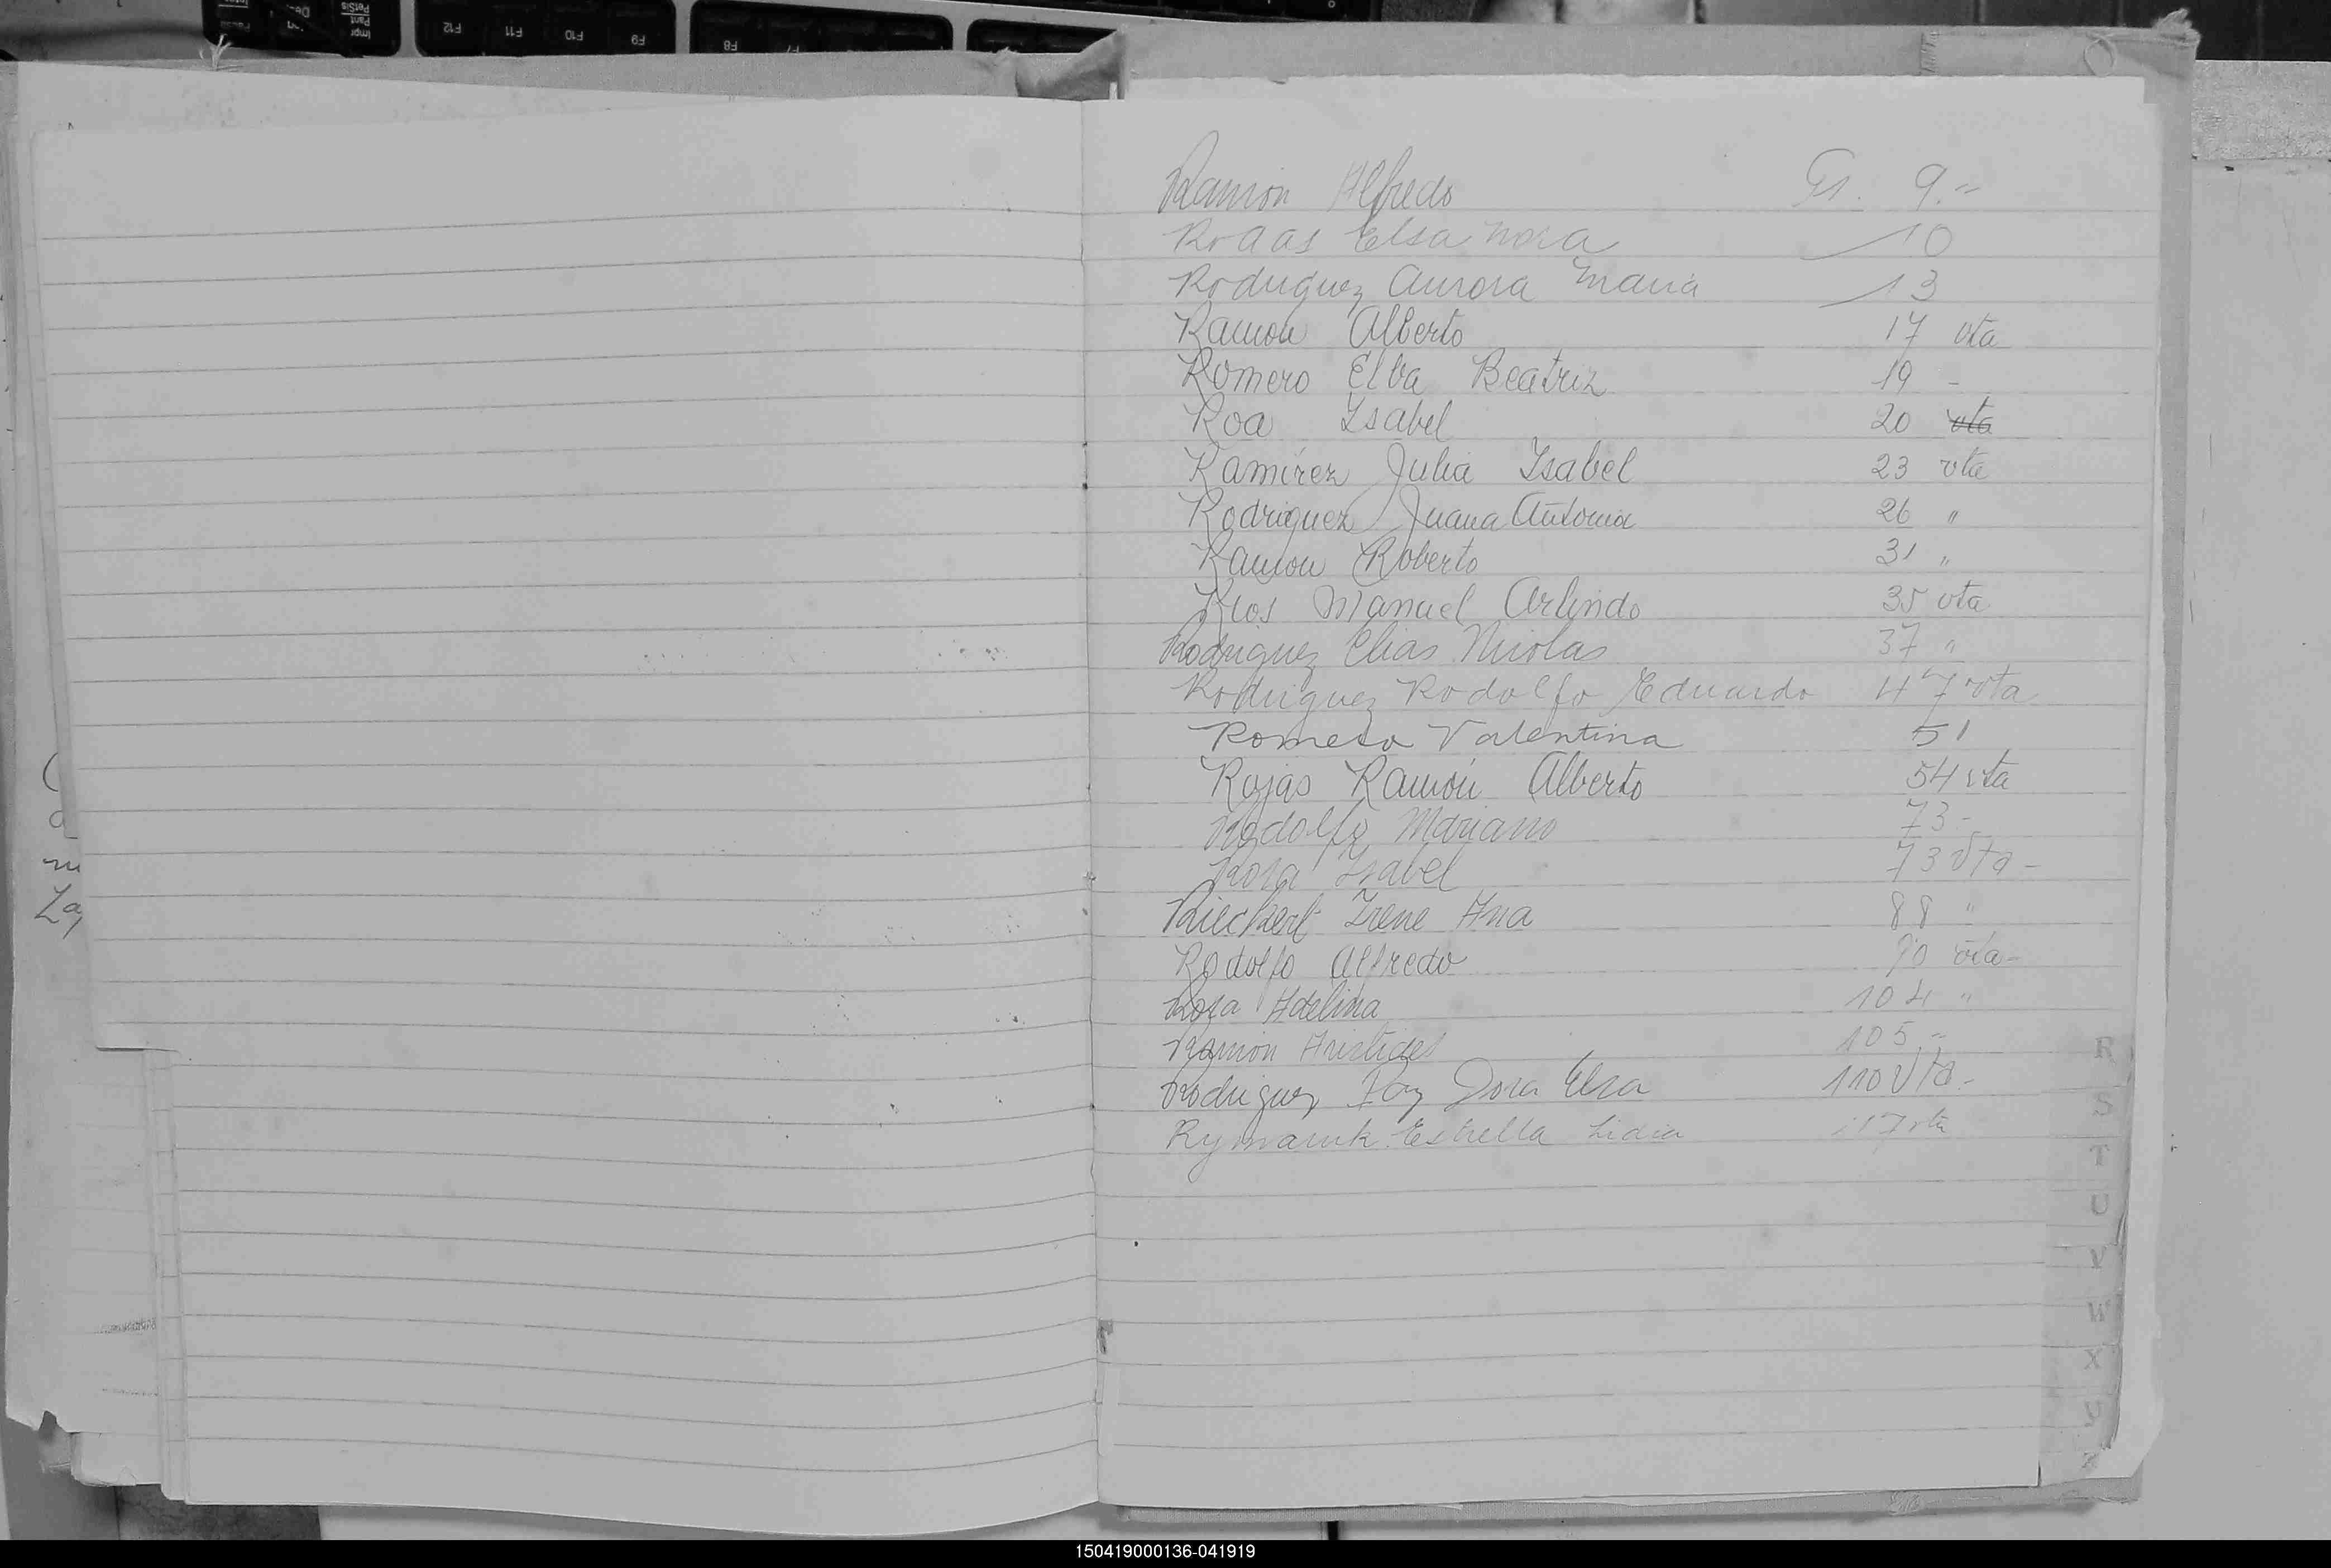 Ramón Alfredo 9.-
Rodas Elsa Nora 10
Rodriguez Aurora Maria 13
Ramón Alberto 17 vta
Romero Elba Beatriz 19 -
Roa Isabel 20 vta
Ramírez Julia Isabel 23 vta
Rodriguez Juana Antonia 26 "
Ramon Roberto 31 "
Rios Manuel Arlindo 35 vta
Rodriguez Elias Nicolas 37 "
Rodriguez Rodolfo Eduardo 47 vta
Romero Valentina 51
Rojas Ramón Alberto 54 vta
Rodolfo Mariano 73 -
Rosa Isabel 73 vta -
Irene Ana 88 "
Rodolfo Alfredo 90 vta -
Rosa Adelina 104 "
Ramón Aristides 105 -
Rodriguez Paz Dora Elsa 110 vta -
Estrella Lidia 117 vta
R
S
T
U
V
W
X
Y
Z
La
F12 F11 F10 F9 F8
150419000136-041919